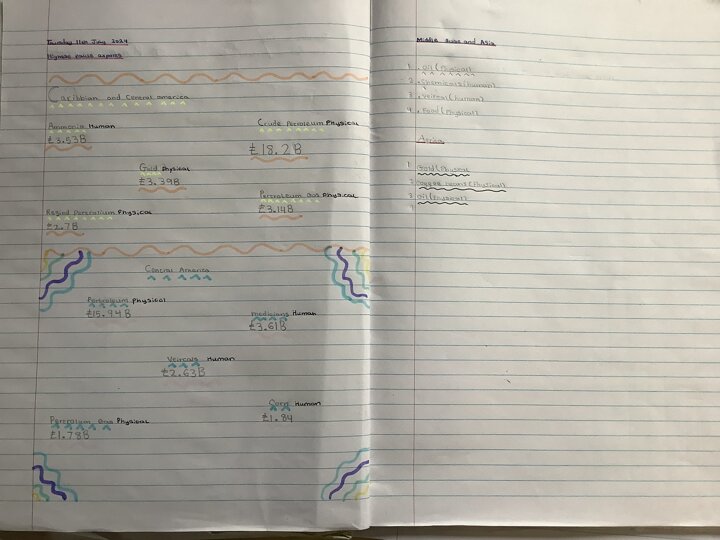 Thursday 11th July 2024
Highest value exports
Caribbian and Central america
Ammonia Human
£3.53B
Crude Petroleum Physical
£18.2B
Gold Physical
£3.39B
Petroleum Gas Physical
£3.14B
Physical
£2.7B
Central America
Physical
£15.94B
medicians Human
£3.61B
Human
£2.63B
Corn Human
£1.84
Gas Physical
£1.78B
Middle and Asia
1. oil (Physical)
2. chemicals (human)
3. (human)
4. Food (Physical)
1 Gold (Physical
2 beans (Physical)
3 oil (Physical)
4